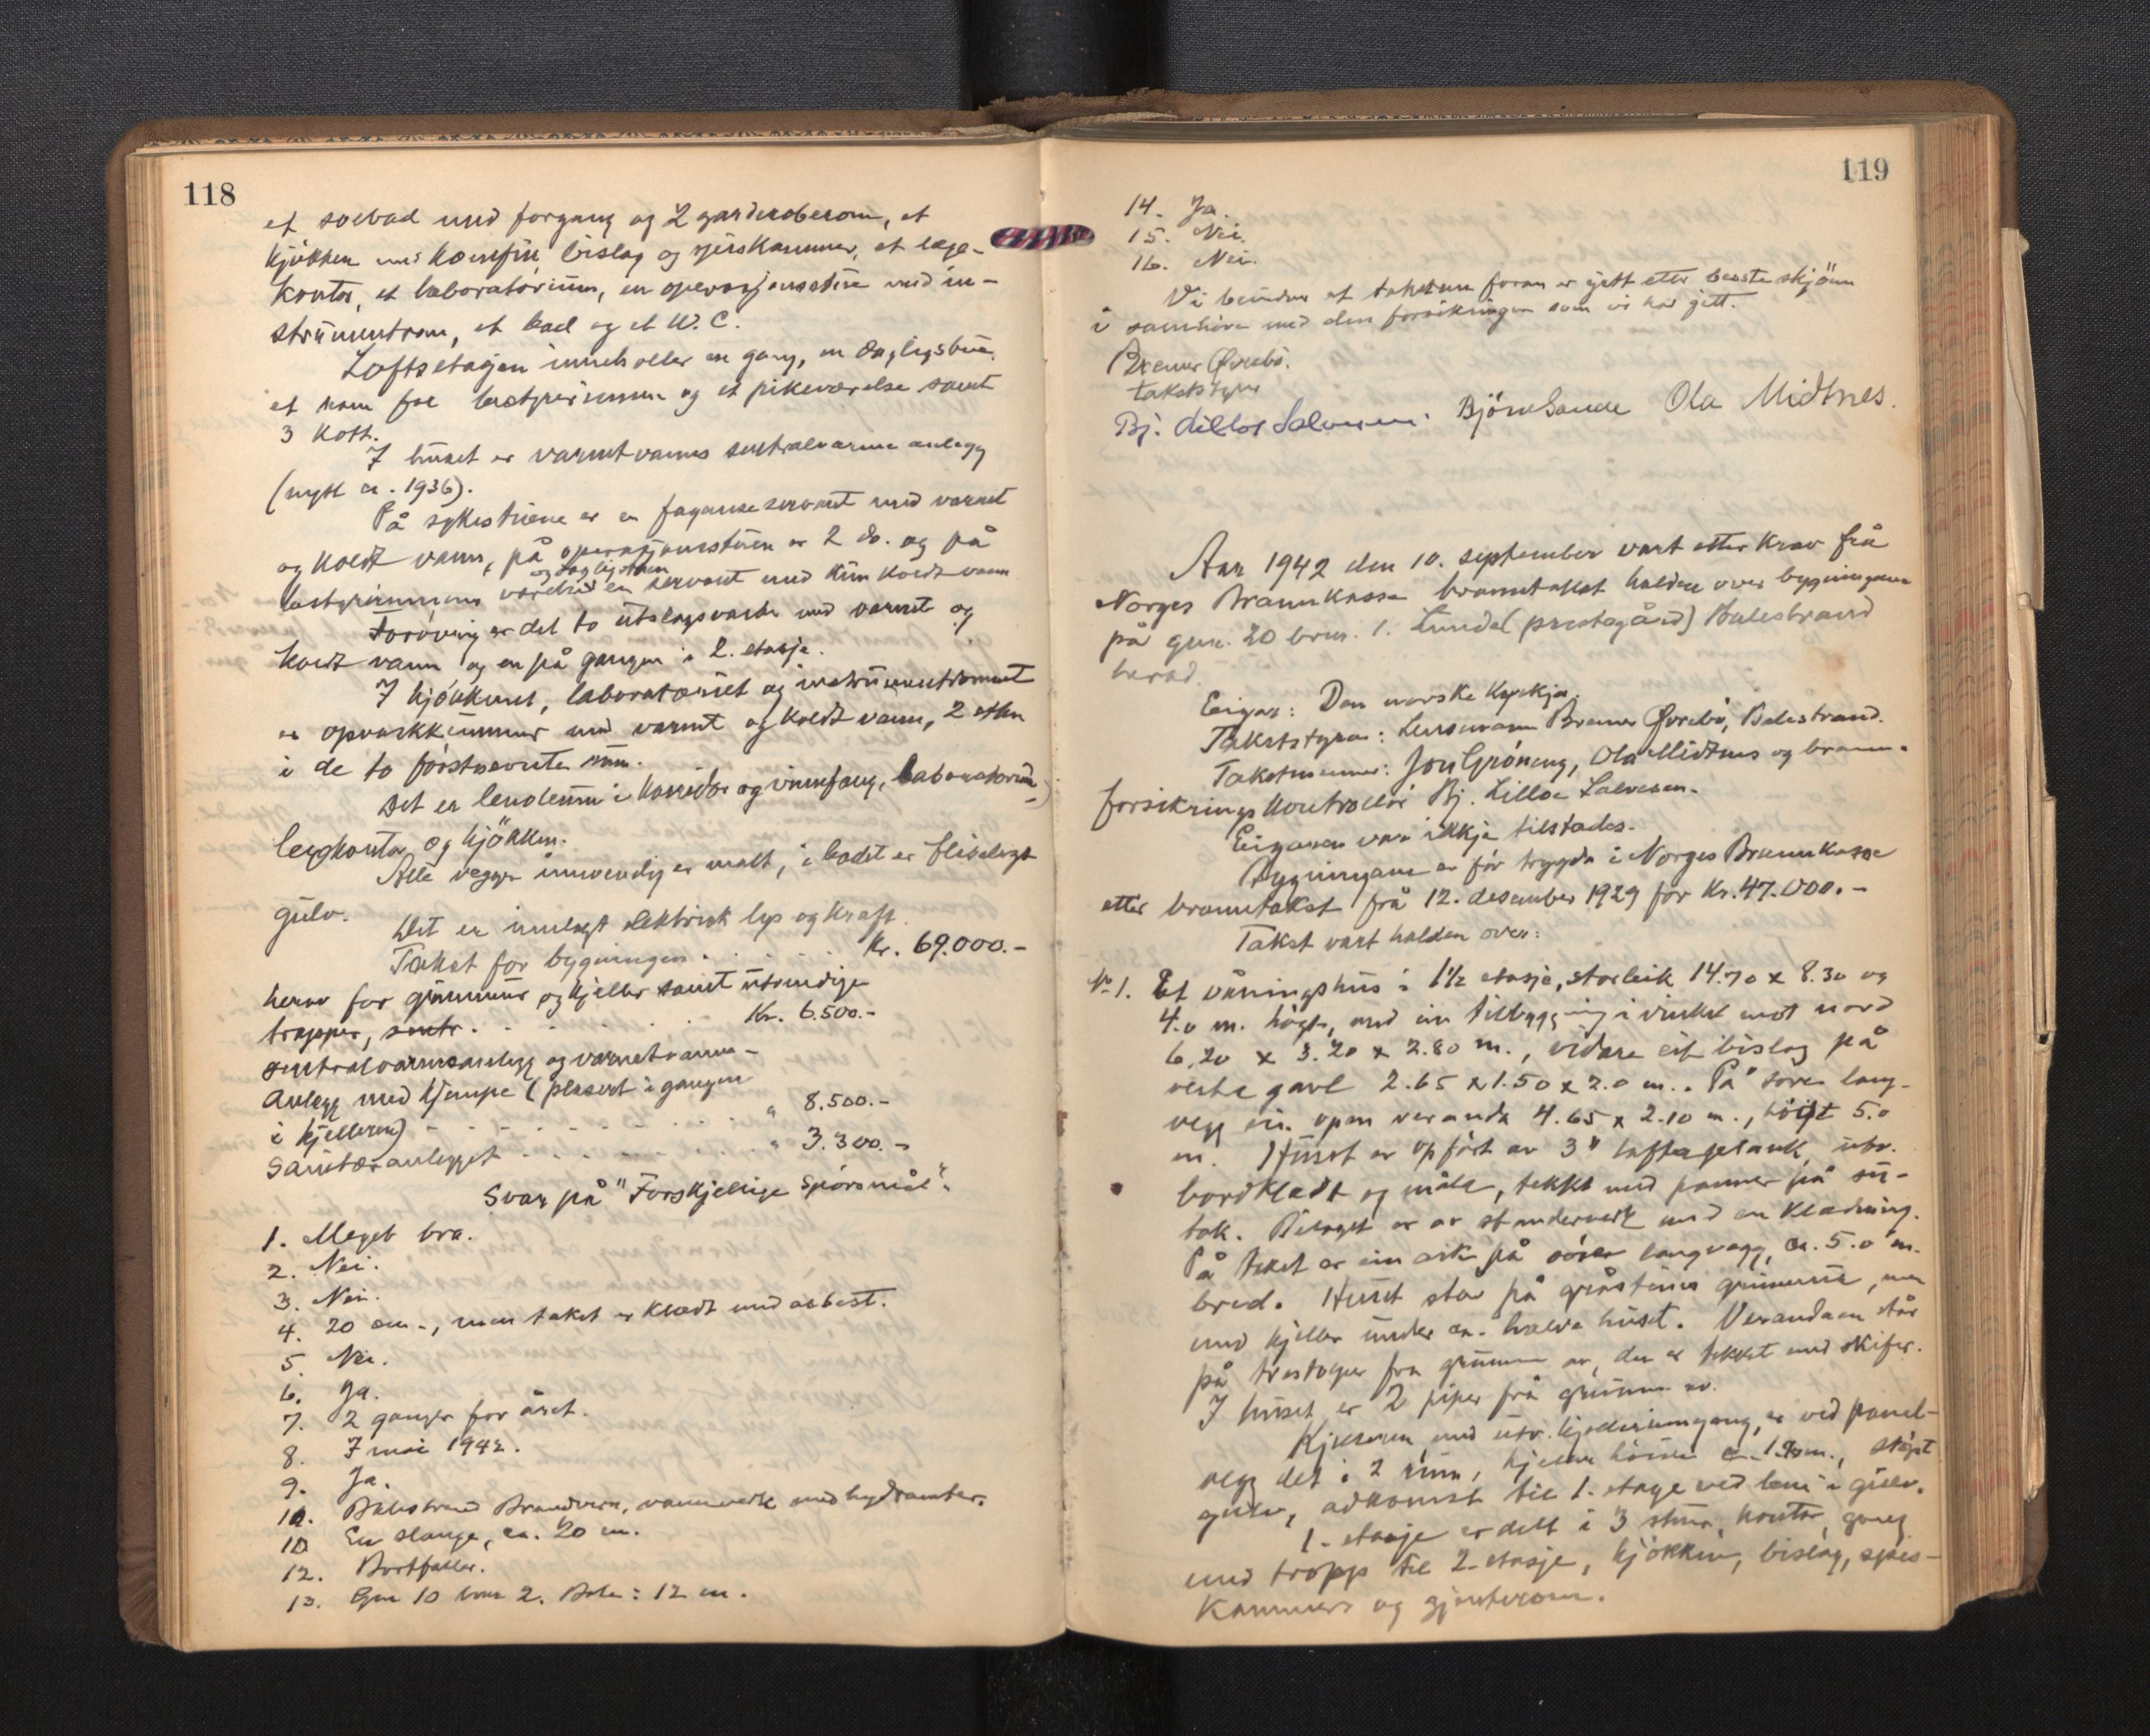 118
et solbad med forgang og 2 garderoberom, et
kjøkken med komfür, bislag og spiskammer, et læge-
kontor, et laboratorium, en operasjonsstue med in-
strumentrom, et bad og et W.C.
Loftsetasjen inneholder en gang, en daglígstue,
et rom for bestyrerinnen og et pikeværelse samt
3 kott.
I huset er varmtvanns sentralvarme anlegg
(nytt ca. 1936).
På sykestuene er en fayanse servant med varmt
og koldt vann, på operasjonsstuen er 2 do. og på
og daglígstuen
bestyrerinnens værelse en servant med kun koldt vann
Forøvrig er det to utslagsvasker med varmt og
koldt vann og en på gangen i 2. etasje.
I kjøkkenet, laboratoriet og instrumentrommet
er opvaskkummer med varmt og koldt vann, 2 stkr
i de to førstnevnte rum.
Det er linoleum i korridor og innefang, laboratorium,
legekontor og kjøkken.
Alle vegger innvendig er malt, i badet er fliselagt
gulv.
Det er innlagt elektrisk lys og kraft.
Takst for bygningen . . . . Kr. 69.000.-
herav for grunnmur og kjeller samt utvendige
trapper, sentr. . . . . . Kr. 6.500.-
sentralvarmeanlegg og varmtvanns-
anlegg med kjempe (plasert i gangen
i kjelleren) - - - - - - - " 8.500.-
Sanitæranlegget - - - - - - " 3.300.-
Svar på "Forskjellige Spörsmål".
1. Meget bra.
2. Nei.
3. Nei.
4. 20 cm., men taket er klædt med asbest.
5. Nei.
6. Ja.
7. 2 ganger for året.
8. 7 mai 1942.
9. Ja.
10. Balestrand Brandvern, vannverk med hydranter.
10 En slange, ca. 20 m.
12. Bortfaller.
13. Gnr 10 bnr 2. Bale: 12 m.
119
14. Ja.
15. Nei.
16. Nei.
Vi et taksten foran er gjett etter beste skjönn
i samhöve med den forsikringen som vi har gjett.
Bremer Øvrebö.
takststyrar
Bj. Lilloe Salvesen. Björn Sande Ola Midtnes.
Aar 1942 den 10. september vart etter krav frå
Norges Brannkasse branntakst halden over bygningane
på gnr. 20 bnr. 1. Lunde (prestegård) Balestrand
herad.
Eigar: Den norske kyrkja.
Takststyrar: Lensmann Bremer Øvrebö, Balestrand.
Takstmenner: Jon Gröneng, Ola Midtnes og brann-
forsikringskontrollör Bj. Lilloe Salvesen.
Eigaren var ikkje tilstades.
Bygningane er för trygda i Norges Brannkasse
etter branntakst frå 12. desember 1929 för Kr. 47.000.-
Takst vart halden over:
No 1. Et våningshus i 1½ etasje, storleik 14.70 x 8.30 og
4.0 m. högt, med ein tilbygging i vinkel mot nord
6.20 x 3.20 x 2.80 m., vidare eit bislag på
vestre gavl 2.65 x 1.50 x 2.0 m.. På söre lang-
vegg ein open veranda 4.65 x 2.10 m., högt 5.0
m. Huset er opfört av 3" lafteplank, utv.
bordklædt og målt, tekkt med panner på su-
tak. Bislaget er av stenderverk med en klædning.
På taket er ein ark på söre langvegg, ca. 5.0 m.
bred. Huset står på gråsteins grunnmur, men
med kjeller under ca. halve huset. Verandaen står
på trestolper fra grunnen av, den er tekket med skifer.
I huset er 2 piper frå grunnen av.
Kjelleren, med utv. kjellerinngang, er ved panel-
vegg delt i 2 rum, kjellar höide ca. 1.90 m., stöpt
gulv, adkomst til 1. etage ved lem i gulv.
1. etasje er delt i 3 stuer, kontor, gang
med tropp til 2. etasje, kjökken, bislag, spis-
kammers og gjesterom.